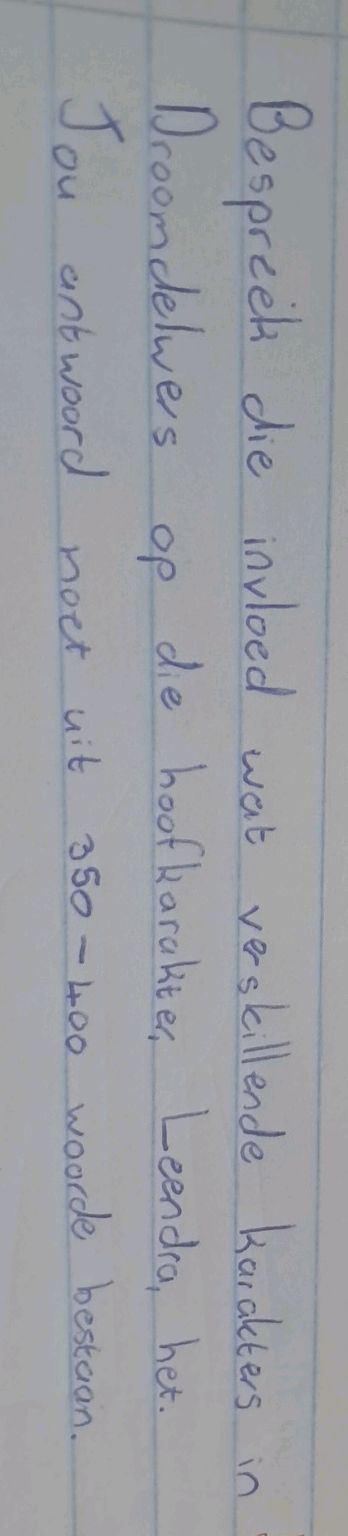 Bespreek die invloed wat verskillende karakters in
Droomdelwers op die hoofkarakter, Leendra, het.
Jou antwoord moet uit 350-400 woorde bestaan.